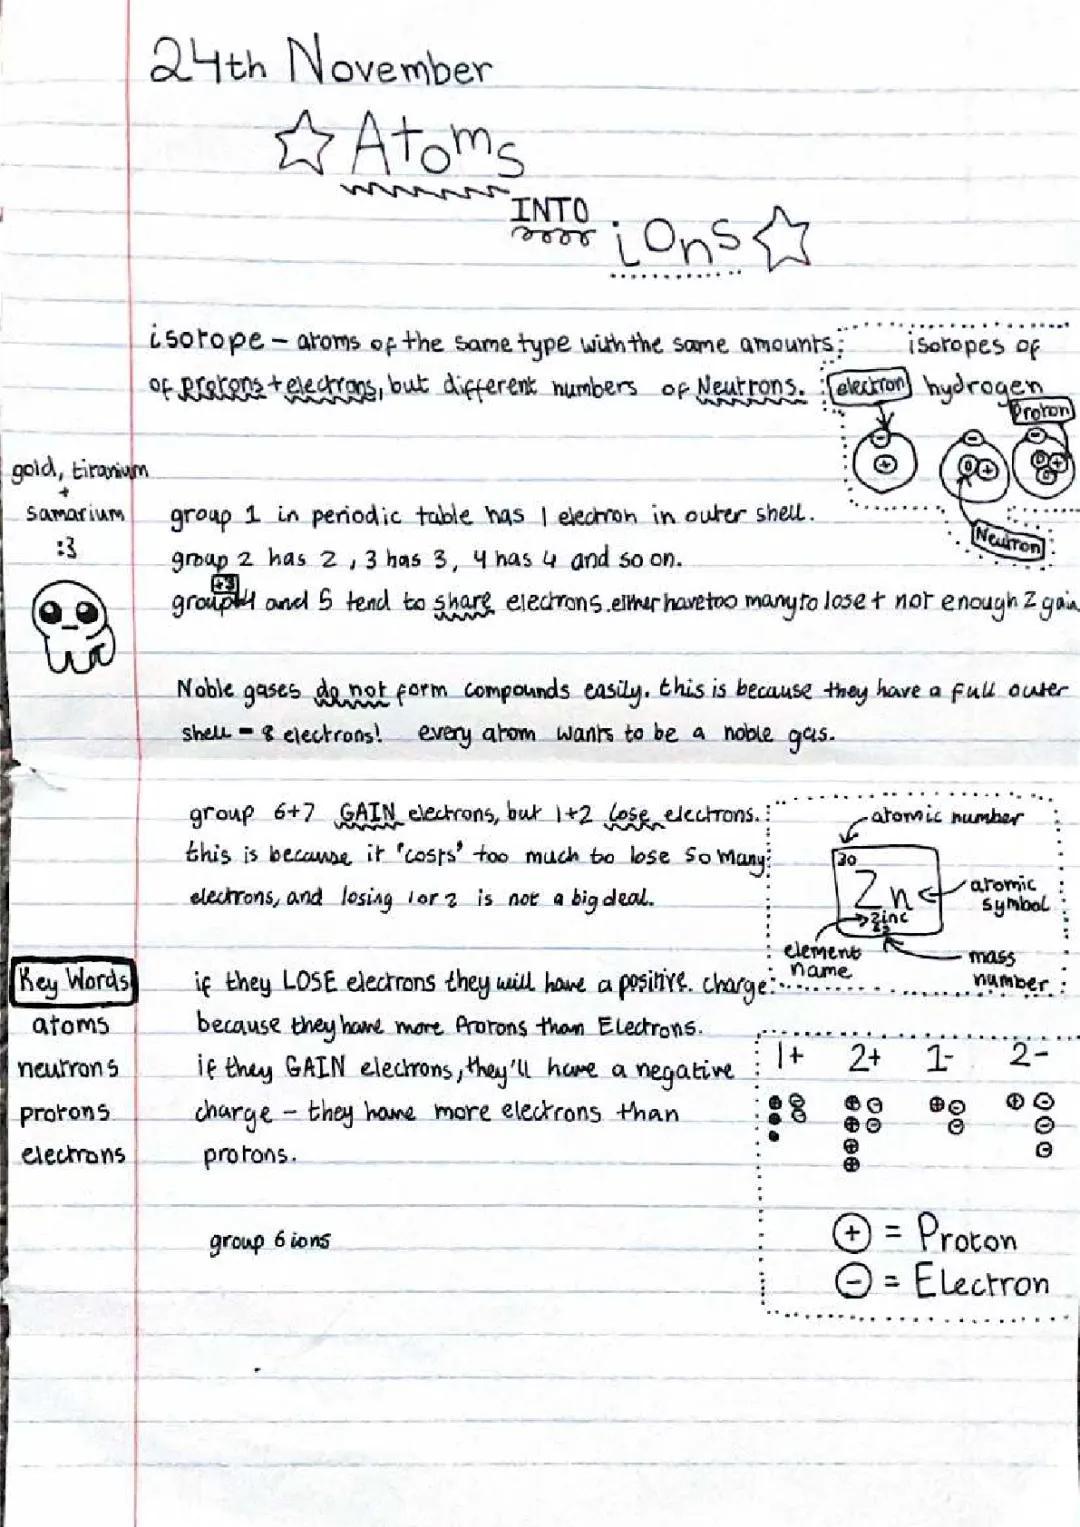 24th November
Atoms
INTO
ions
isotope - atoms of the same type with the same amounts
of protons + electrons, but different numbers of Neutrons.
isotopes of
hydrogen
electron
Proton
Neutron
gold, titanium
+
samarium
:3
group 1 in periodic table has 1 electron in outer shell.
group 2 has 2, 3 has 3, 4 has 4 and so on.
+3
group 4 and 5 tend to share electrons. either have too many to lose + not enough 2 gain
Noble gases do not form compounds easily. this is because they have a full outer
shell - 8 electrons! every atom wants to be a noble gas.
group 6+7 GAIN electrons, but 1+2 lose electrons.
this is because it 'costs' too much to lose so many
electrons, and losing 1 or 2 is not a big deal.
atomic number
30
Zn
zinc
atomic
symbol
element
name
mass
number
Key Words
atoms
neutrons
protons
electrons
if they LOSE electrons they will have a positive charge
because they have more Protons than Electrons.
if they GAIN electrons, they'll have a negative
charge - they have more electrons than
protons.
group 6 ions
1+ 2+ 1- 2-
+ = Proton
- = Electron